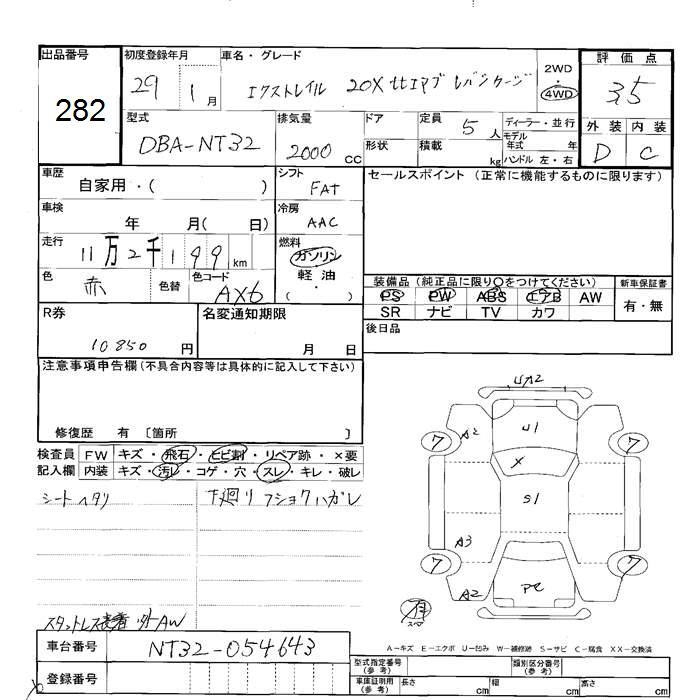 出品番号
282
初度登録年月
29 1月
車名・グレード
エクストレイル 20X
2WD
4WD
評価点
3.5
外装 内装
D C
型式
DBA-NT32
排気量
2000 CC
ドア
形状
定員 5 人
積載 kg
ディーラー・並行
モデル年式 年
ハンドル 左・右
車歴
自家用・( )
シフト
FAT
セールスポイント (正常に機能するものに限ります)
車検
年 月( 日)
冷房
AAC
走行
11万2千199 km
燃料
ガソリン
軽油
( ・ )
色
赤
色替
色コード
AX6
装備品(純正品に限り○をつけてください)
PS PW ABS エアB AW
SR ナビ TV カワ
新車保証書
有・無
R券
10850 円
名変通知期限
月 日
後日品
注意事項申告欄(不具合内容等は具体的に記入して下さい)
修復歴 有 〔箇所 〕
検査員記入欄
FW キズ・飛石・ヒビ割・リペア跡・×要
内装 キズ・汚レ・コゲ・穴・スレ・キレ・破レ
シートヘタリ
下廻リ フショクハガレ
UA2
A2
U1
7
7
X
S1
A3
7
7
A2
スタットレス装着 AW
車台番号
NT32-054643
登録番号
A-キズ E-エクボ U-凹み W-補修跡 S-サビ C-腐食 XX-交換済
型式指定番号(参考)
類別区分番号(参考)
車庫証明用(参考)
長さ cm
幅 cm
高さ cm